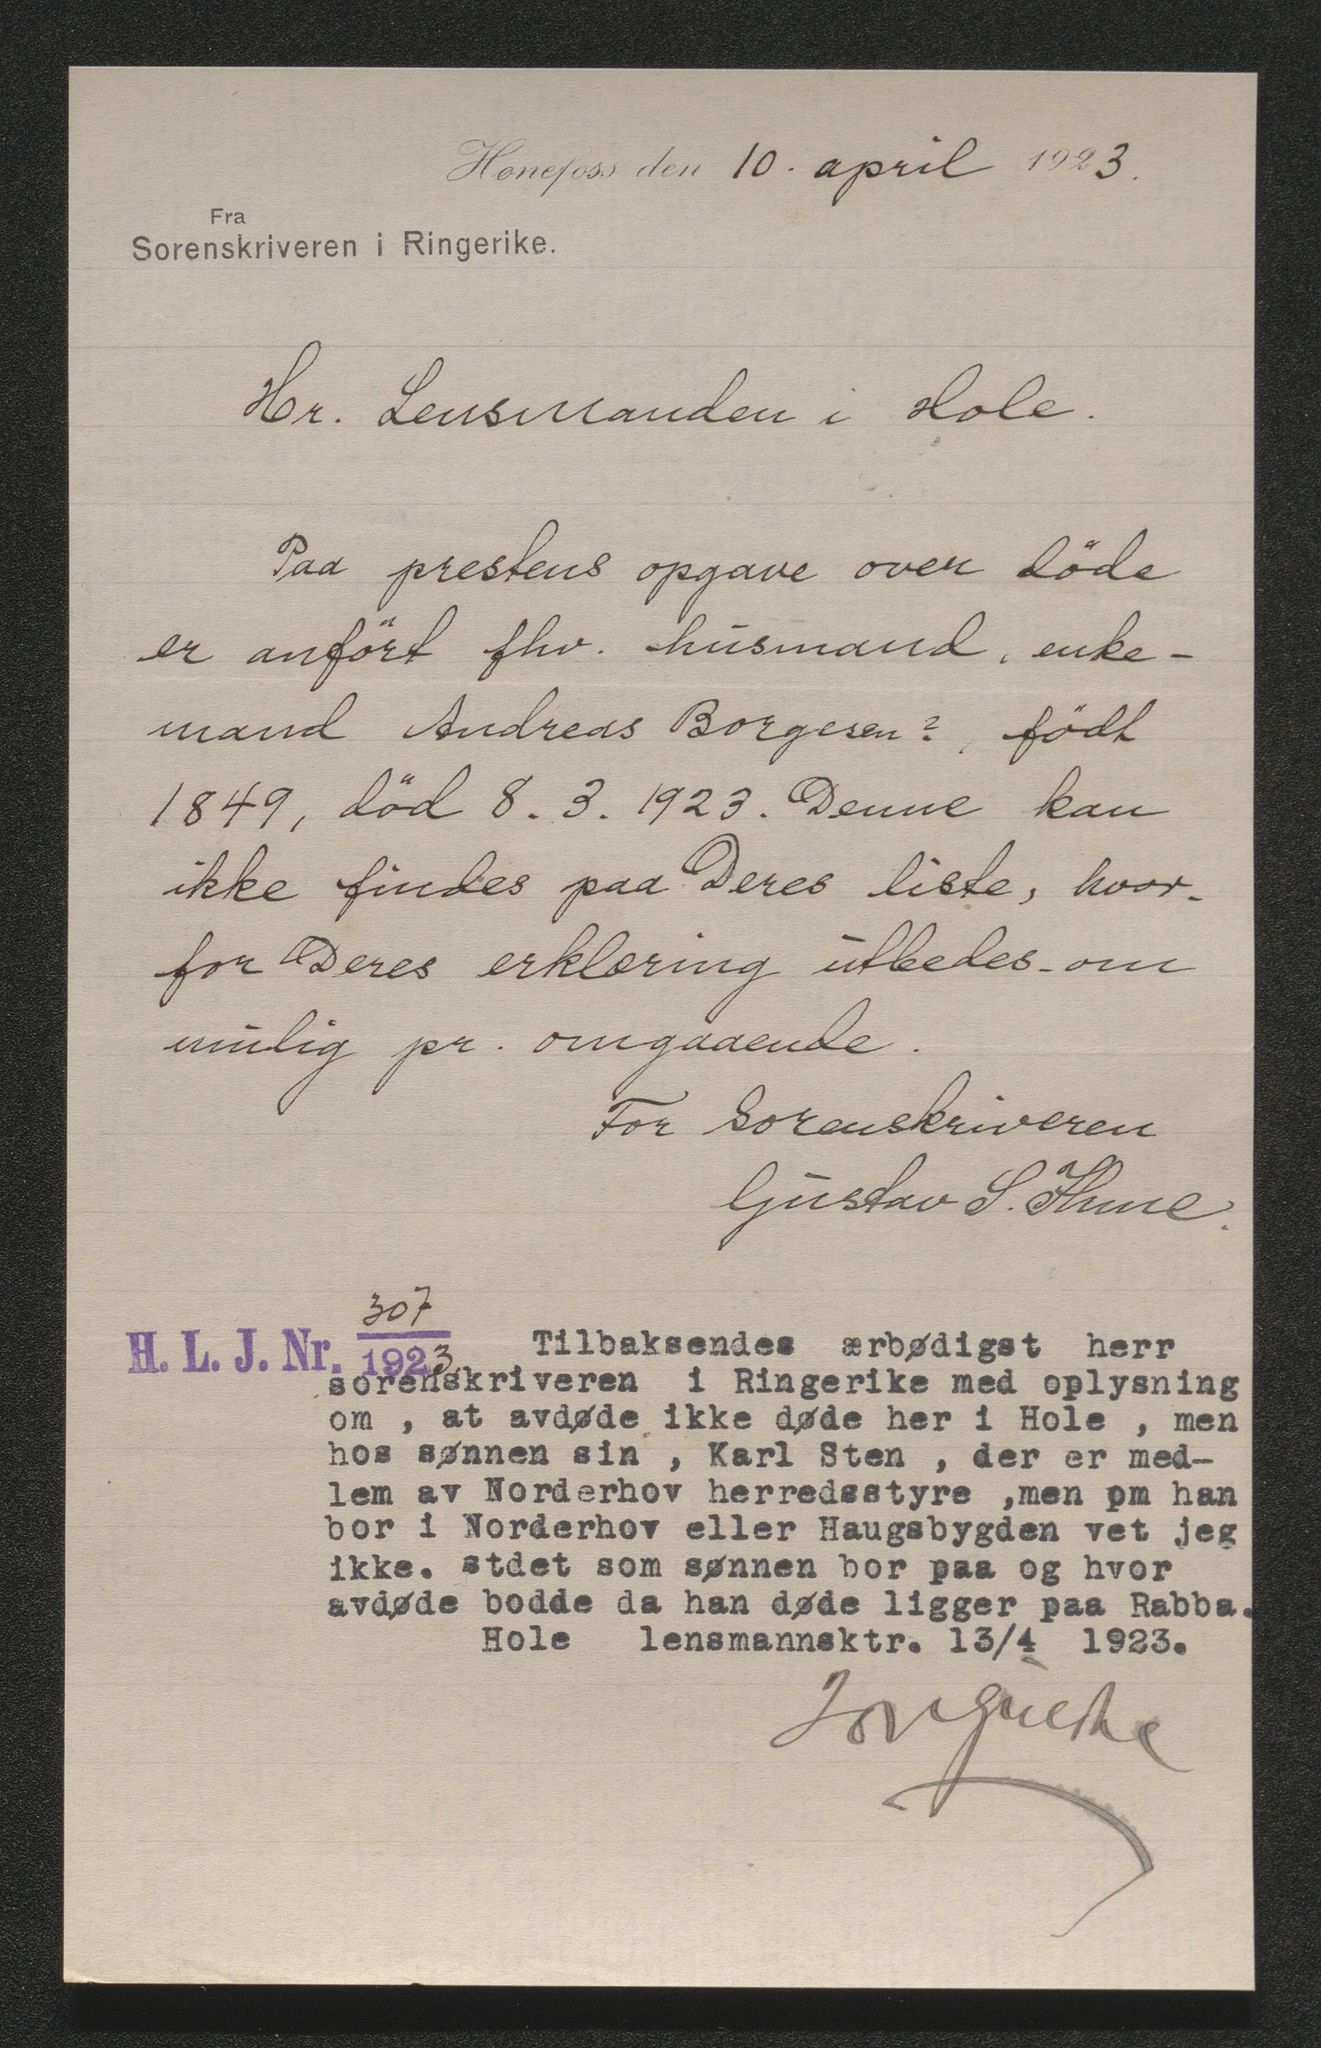 Hønefoss den 10. april 1923.
Fra
Sorenskriveren i Ringerike.
Hr. Lensmanden i Hole.
Paa prestens opgave over döde
er anfört fhv. husmand, enke-
mand Andreas Borgesen?, födt
1849, död 8.3.1923. Denne kan
ikke findes paa Deres liste, hvor-
for Deres erklæring utbedes - om
mulig pr. omgaaende.
For Sorenskriveren
Gustav S. Ihme.
H. L. J. Nr. 307/1923
Tilbaksendes ærbødigst herr
sorenskriveren i Ringerike med oplysning
om , at avdøde ikke døde her i Hole , men
hos sønnen sin , Karl Sten , der er med-
lem av Norderhov herredsstyre ,men pm han
bor i Norderhov eller Haugsbygden vet jeg
ikke. stdet som sønnen bor paa og hvor
avdøde bodde da han døde ligger paa Rabba.
Hole lensmannsktr. 13/4 1923.